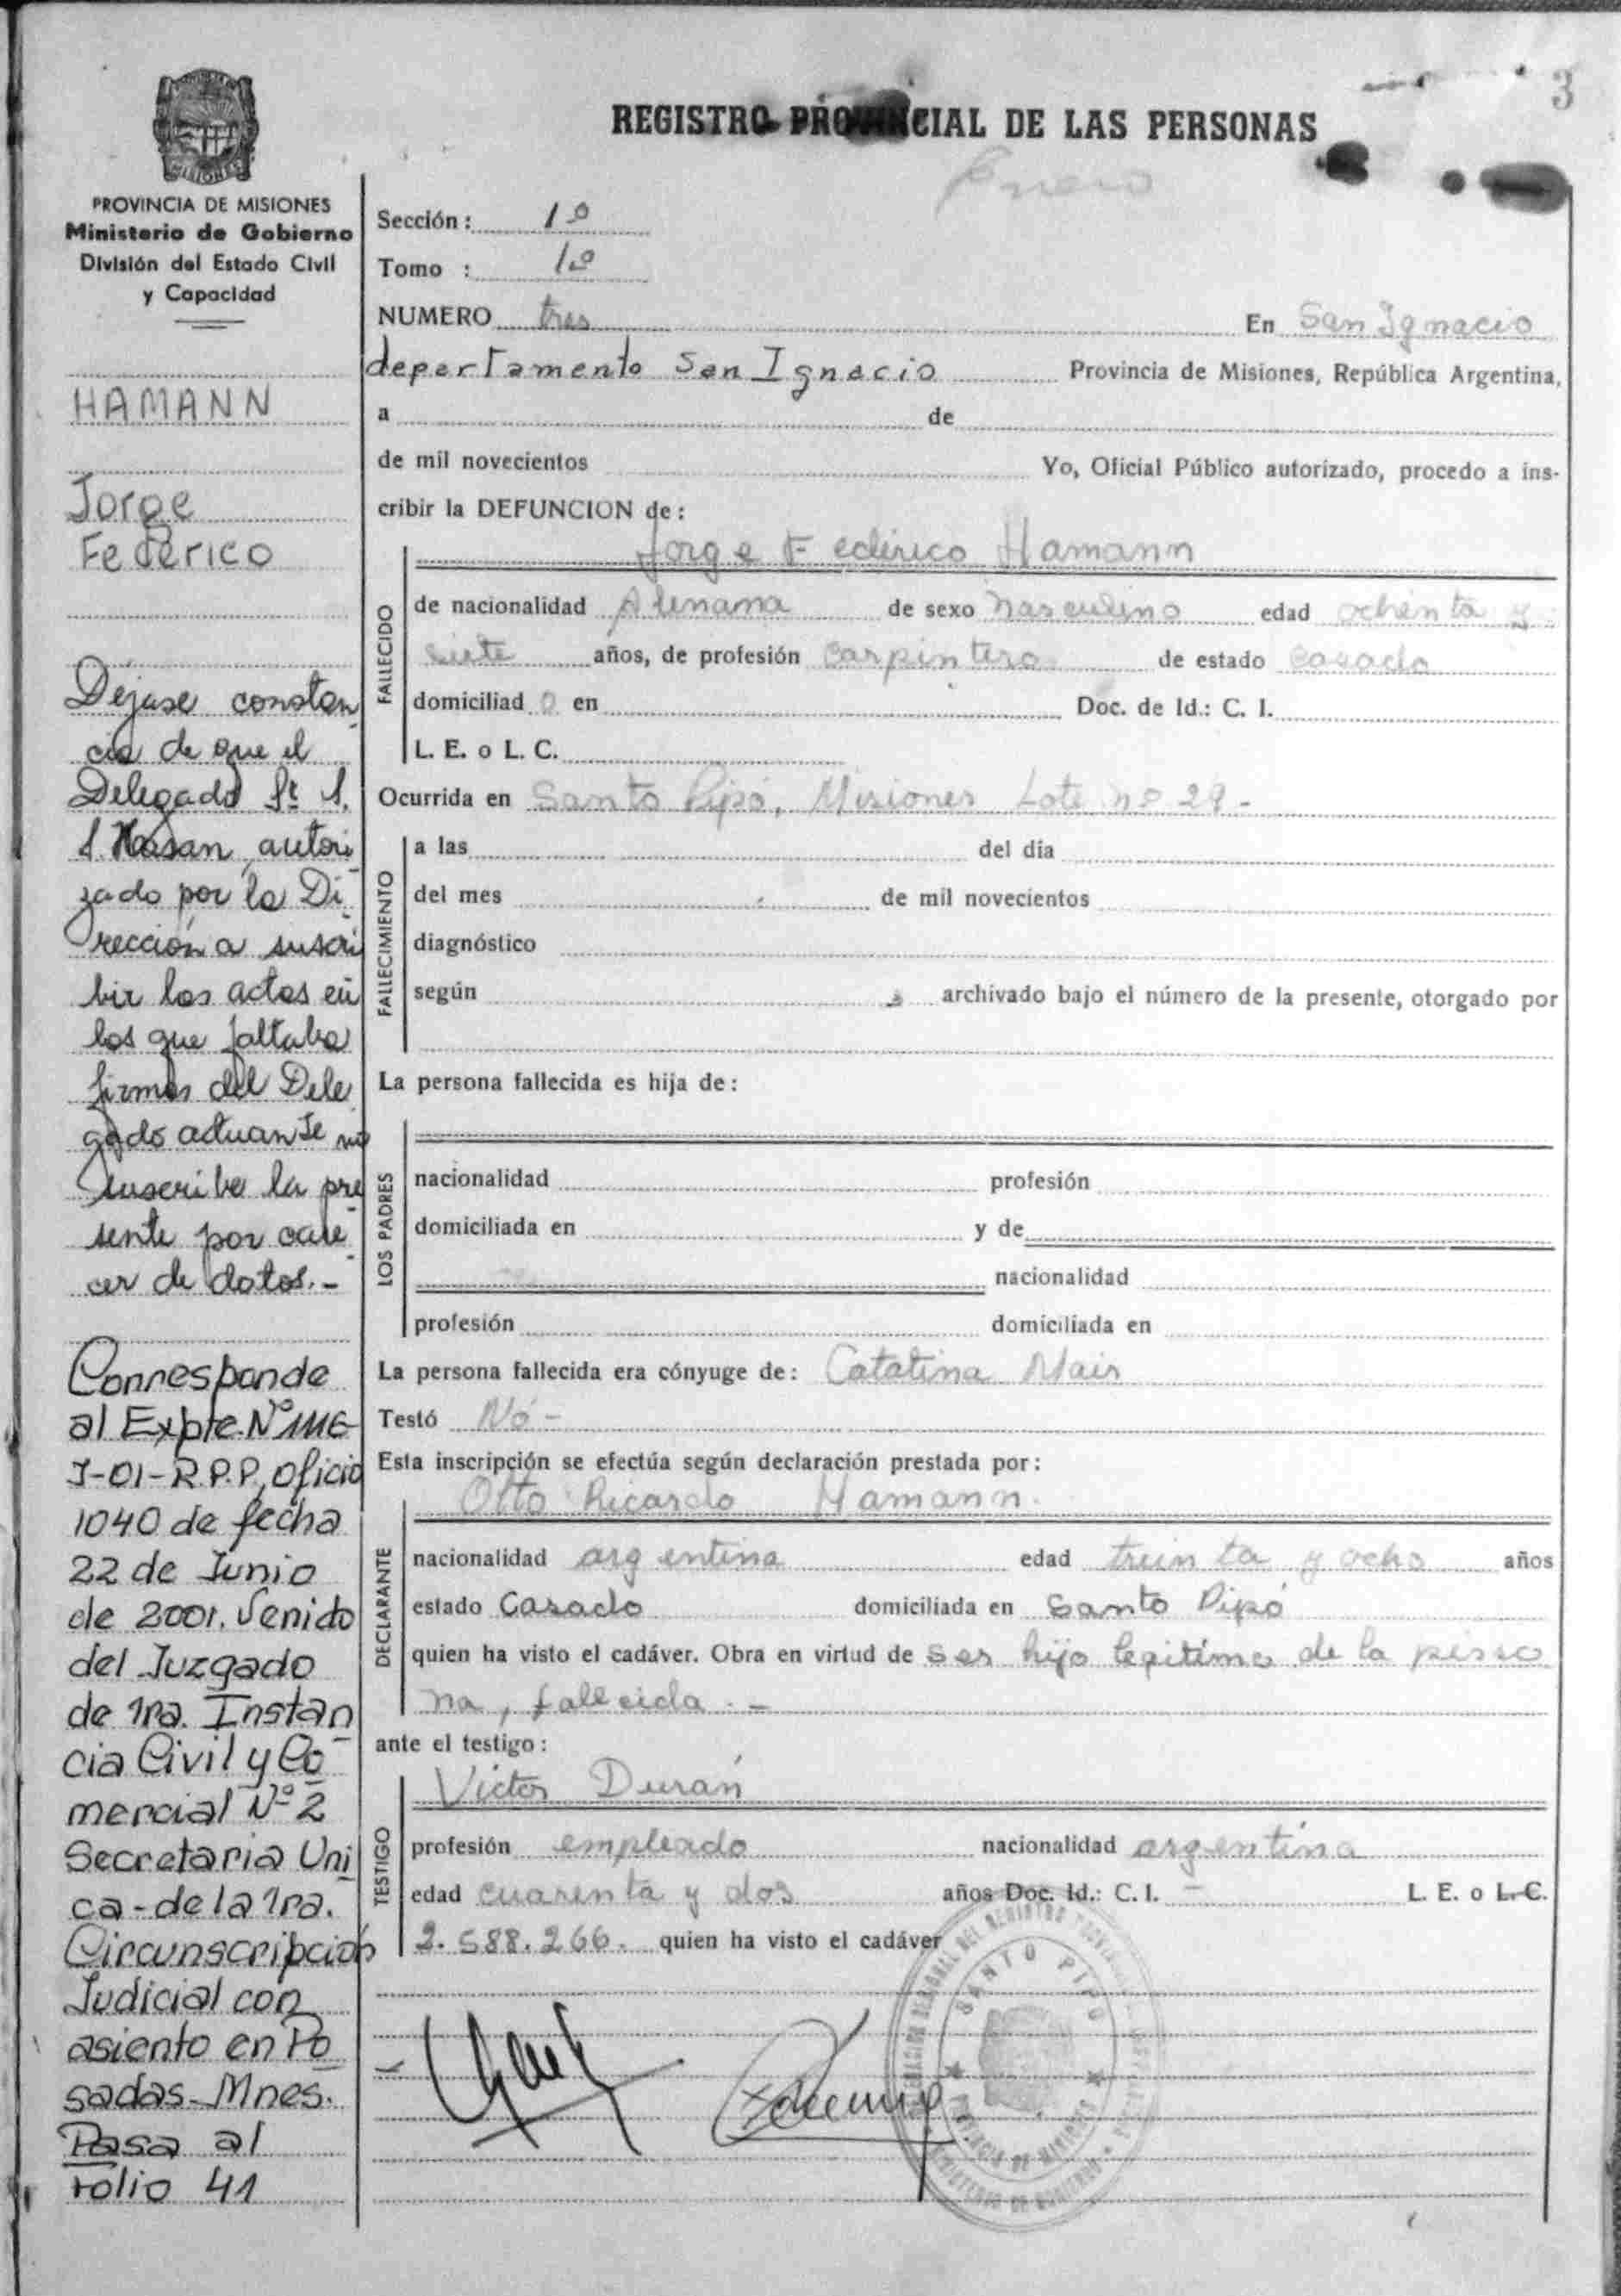 3
REGISTRO PROVINCIAL DE LAS PERSONAS
Enero
MISIONES
PROVINCIA DE MISIONES
Ministerio de Gobierno
División del Estado Civil
y Capacidad
HAMANN
Jorge
Federico
Déjase constan
cia de que el
Delegado Sr.
Hasan, autori
zado por la Di
rección a suscri
bir las actas en
las que faltaba
firmas del Dele
gado actuante no
suscribe la pre
sente por care
cer de datos.-
Corresponde
al Expte. Nº 1116-
J-01-R.P.P, Oficio
1040 de fecha
22 de Junio
de 2001. Venido
del Juzgado
de 1ra. Instan
cia Civil y Co
mercial Nº 2
Secretaria Uni
ca-de la 1ra.
Circunscripcion
Judicial con
asiento en Po
sadas-Mnes.
Pasa al
Folio 41
Sección: 1º
Tomo : 1º
NUMERO tres En San Ignacio
departamento San Ignacio Provincia de Misiones, República Argentina,
a de
de mil novecientos Yo, Oficial Público autorizado, procedo a ins-
cribir la DEFUNCION de:
Jorge Federico Hamann
FALLECIDO
de nacionalidad Alemana de sexo masculino edad ochenta y
siete años, de profesión carpintero de estado casado
domiciliad o en Doc. de Id.: C. I.
L. E. o L. C.
Ocurrida en Santo Pipó, Misiones Lote nº 29-
FALLECIMIENTO
a las del día
del mes de mil novecientos
diagnóstico
según archivado bajo el número de la presente, otorgado por
La persona fallecida es hija de:
LOS PADRES
nacionalidad profesión
domiciliada en y de
nacionalidad
profesión domiciliada en
La persona fallecida era cónyuge de: Catalina Mair
Testó No-
Esta inscripción se efectúa según declaración prestada por:
Otto Ricardo Hamann.
DECLARANTE
nacionalidad argentina edad treinta y ocho años
estado Casado domiciliada en Santo Pipó
quien ha visto el cadáver. Obra en virtud de ser hijo legitimo de la perso
na, fallecida.-
ante el testigo:
Victor Durán
TESTIGO
profesión empleado nacionalidad argentina
edad cuarenta y dos años Doc. Id.: C. I. - L. E. o L. C.
2.588.266. quien ha visto el cadáver
SANTO PIPO
PROVINCIA DE MISIONES
MINISTERIO DE GOBIERNO